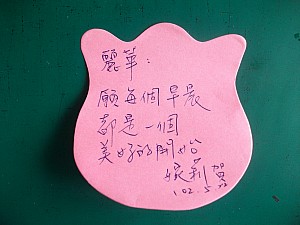 麗華:
願每個早晨
都是一個
美好的開始
莉賀
102.5.